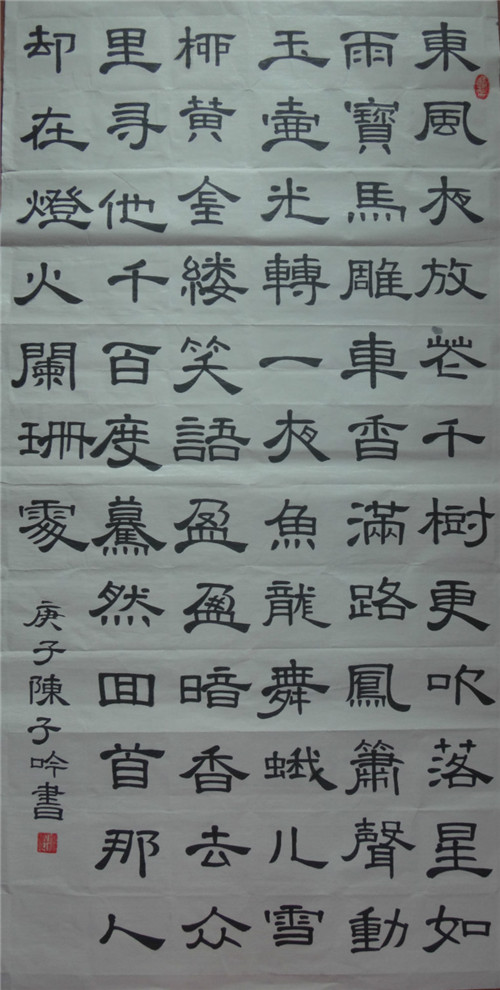 東風夜放花千樹更吹落星如
雨寶馬雕車香滿路鳳簫聲動
玉壺光轉一夜魚龍舞蛾儿雪
柳黃金縷笑語盈盈暗香去众
里寻他千百度驀然回首那人
却在燈火闌珊處
庚子陳子吟書